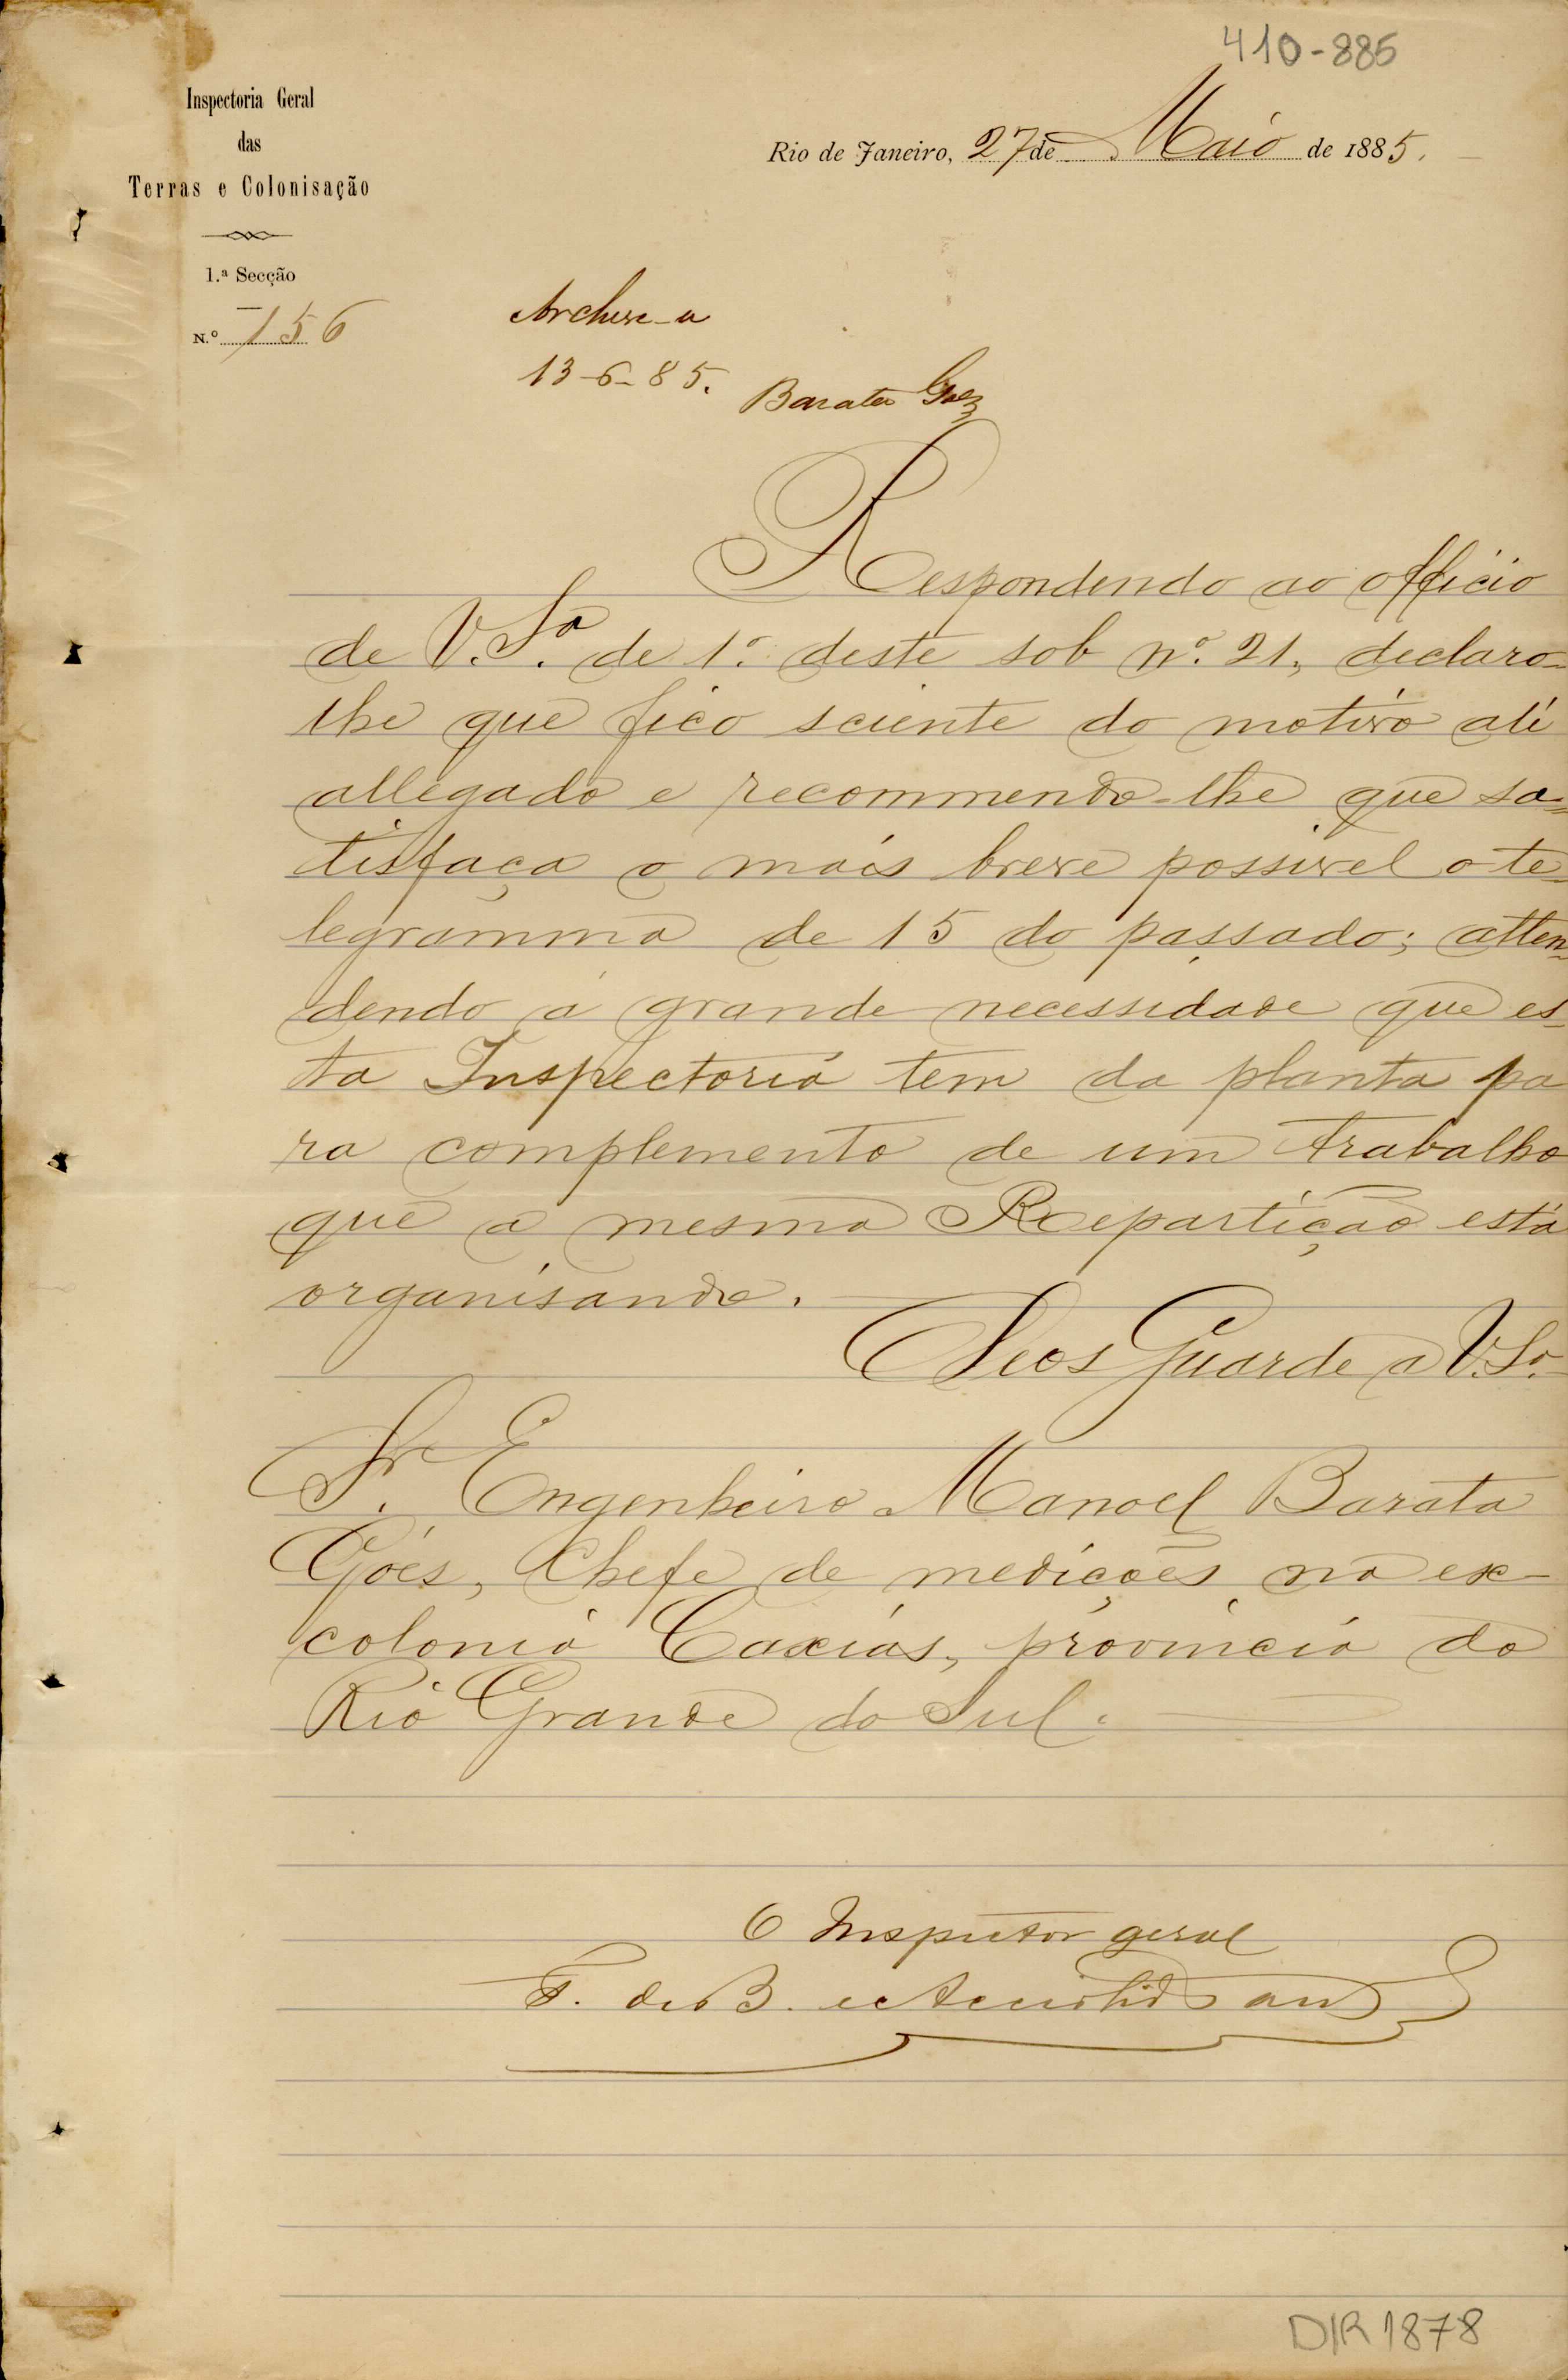 410-885
Inspectoria Geral
das
Terras e Colonisação
1.ª Secção
N.º 156
Rio de Janeiro, 27 de Maio de 1885.
Archive-a
13-6-85.
Barata Goez
Respondendo ao officio
de V. Sª. de 1º. deste sob nº. 21, declaro-
lhe que fico sciente do motivo ali
allegado e recommendo-lhe que sa-
tisfaça o mais breve possivel o te-
legramma de 15 do passado; atten-
dendo á grande necessidade que es-
ta Inspectoria tem da planta pa
ra complemento de um trabalho
que a mesma Repartição está
organisando.
Deos Guarde a V. Sª.
Sr. Engenheiro Manoel Barata
Góes, Chefe de medições na ex-
colonia Caxias, provincia do
Rio Grande do Sul.
O Inspector geral
F. de B. e Accioli de
DIR 1878